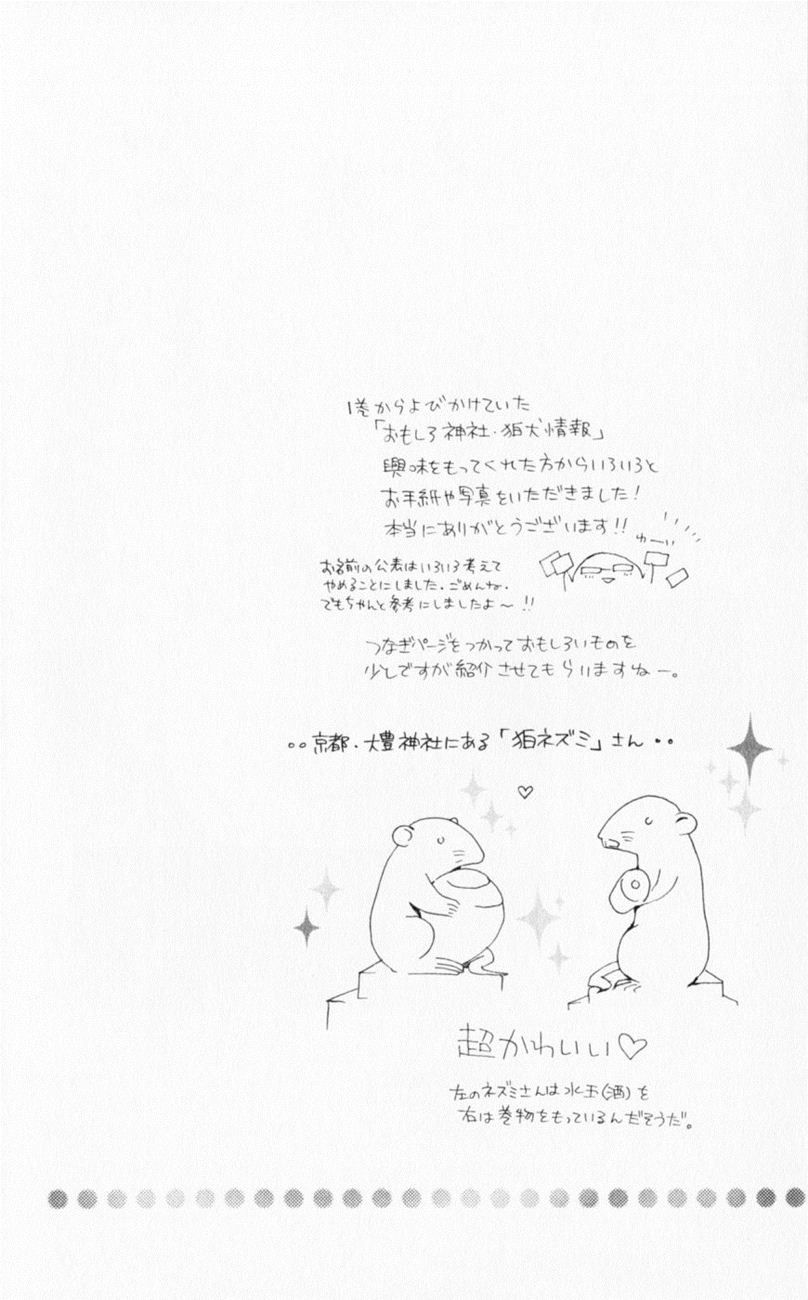 1巻からよびかけていた
「おもしろ神社・狛犬情報」
興味をもってくれた方からいろいろと
お手紙や写真をいただきました!
本当にありがとうございます!!
お名前の公表はいろいろ考えて
やめることにしました。ごめんね。
でもちゃんと参考にしましたよ〜!!
つなぎページをつかっておもしろいものを
少しですが紹介させてもらいますねー。
・・京都・大豊神社にある「狛ネズミ」さん・・
超かわいい♡
左のネズミさんは水玉(酒)を
右は巻物をもっているんだそうだ。